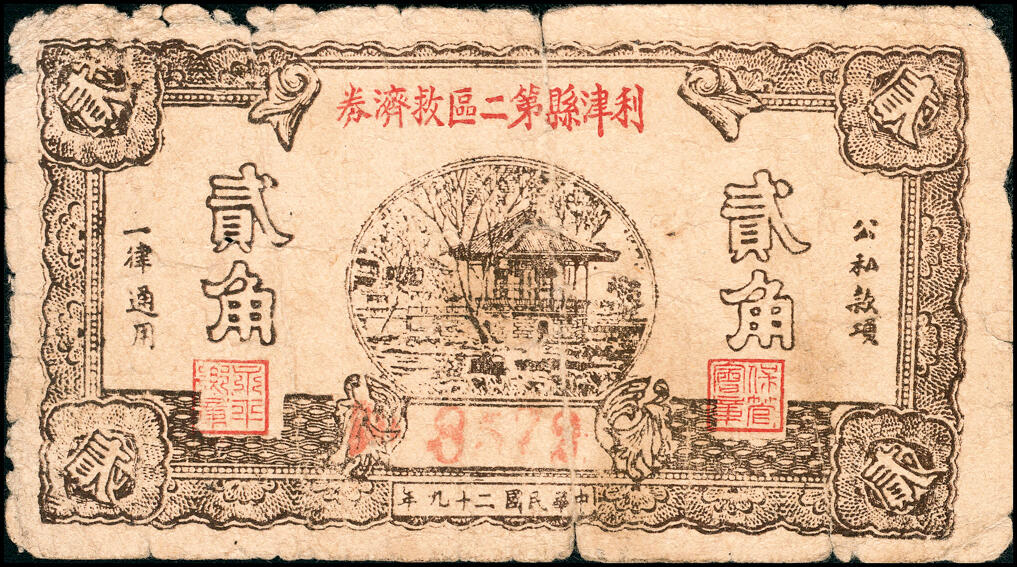 利津縣第二區救濟券
貳
貳
貳角
貳角
公私款項
一律通用
保管
會章
8579
貳
貳
中華民國二十九年